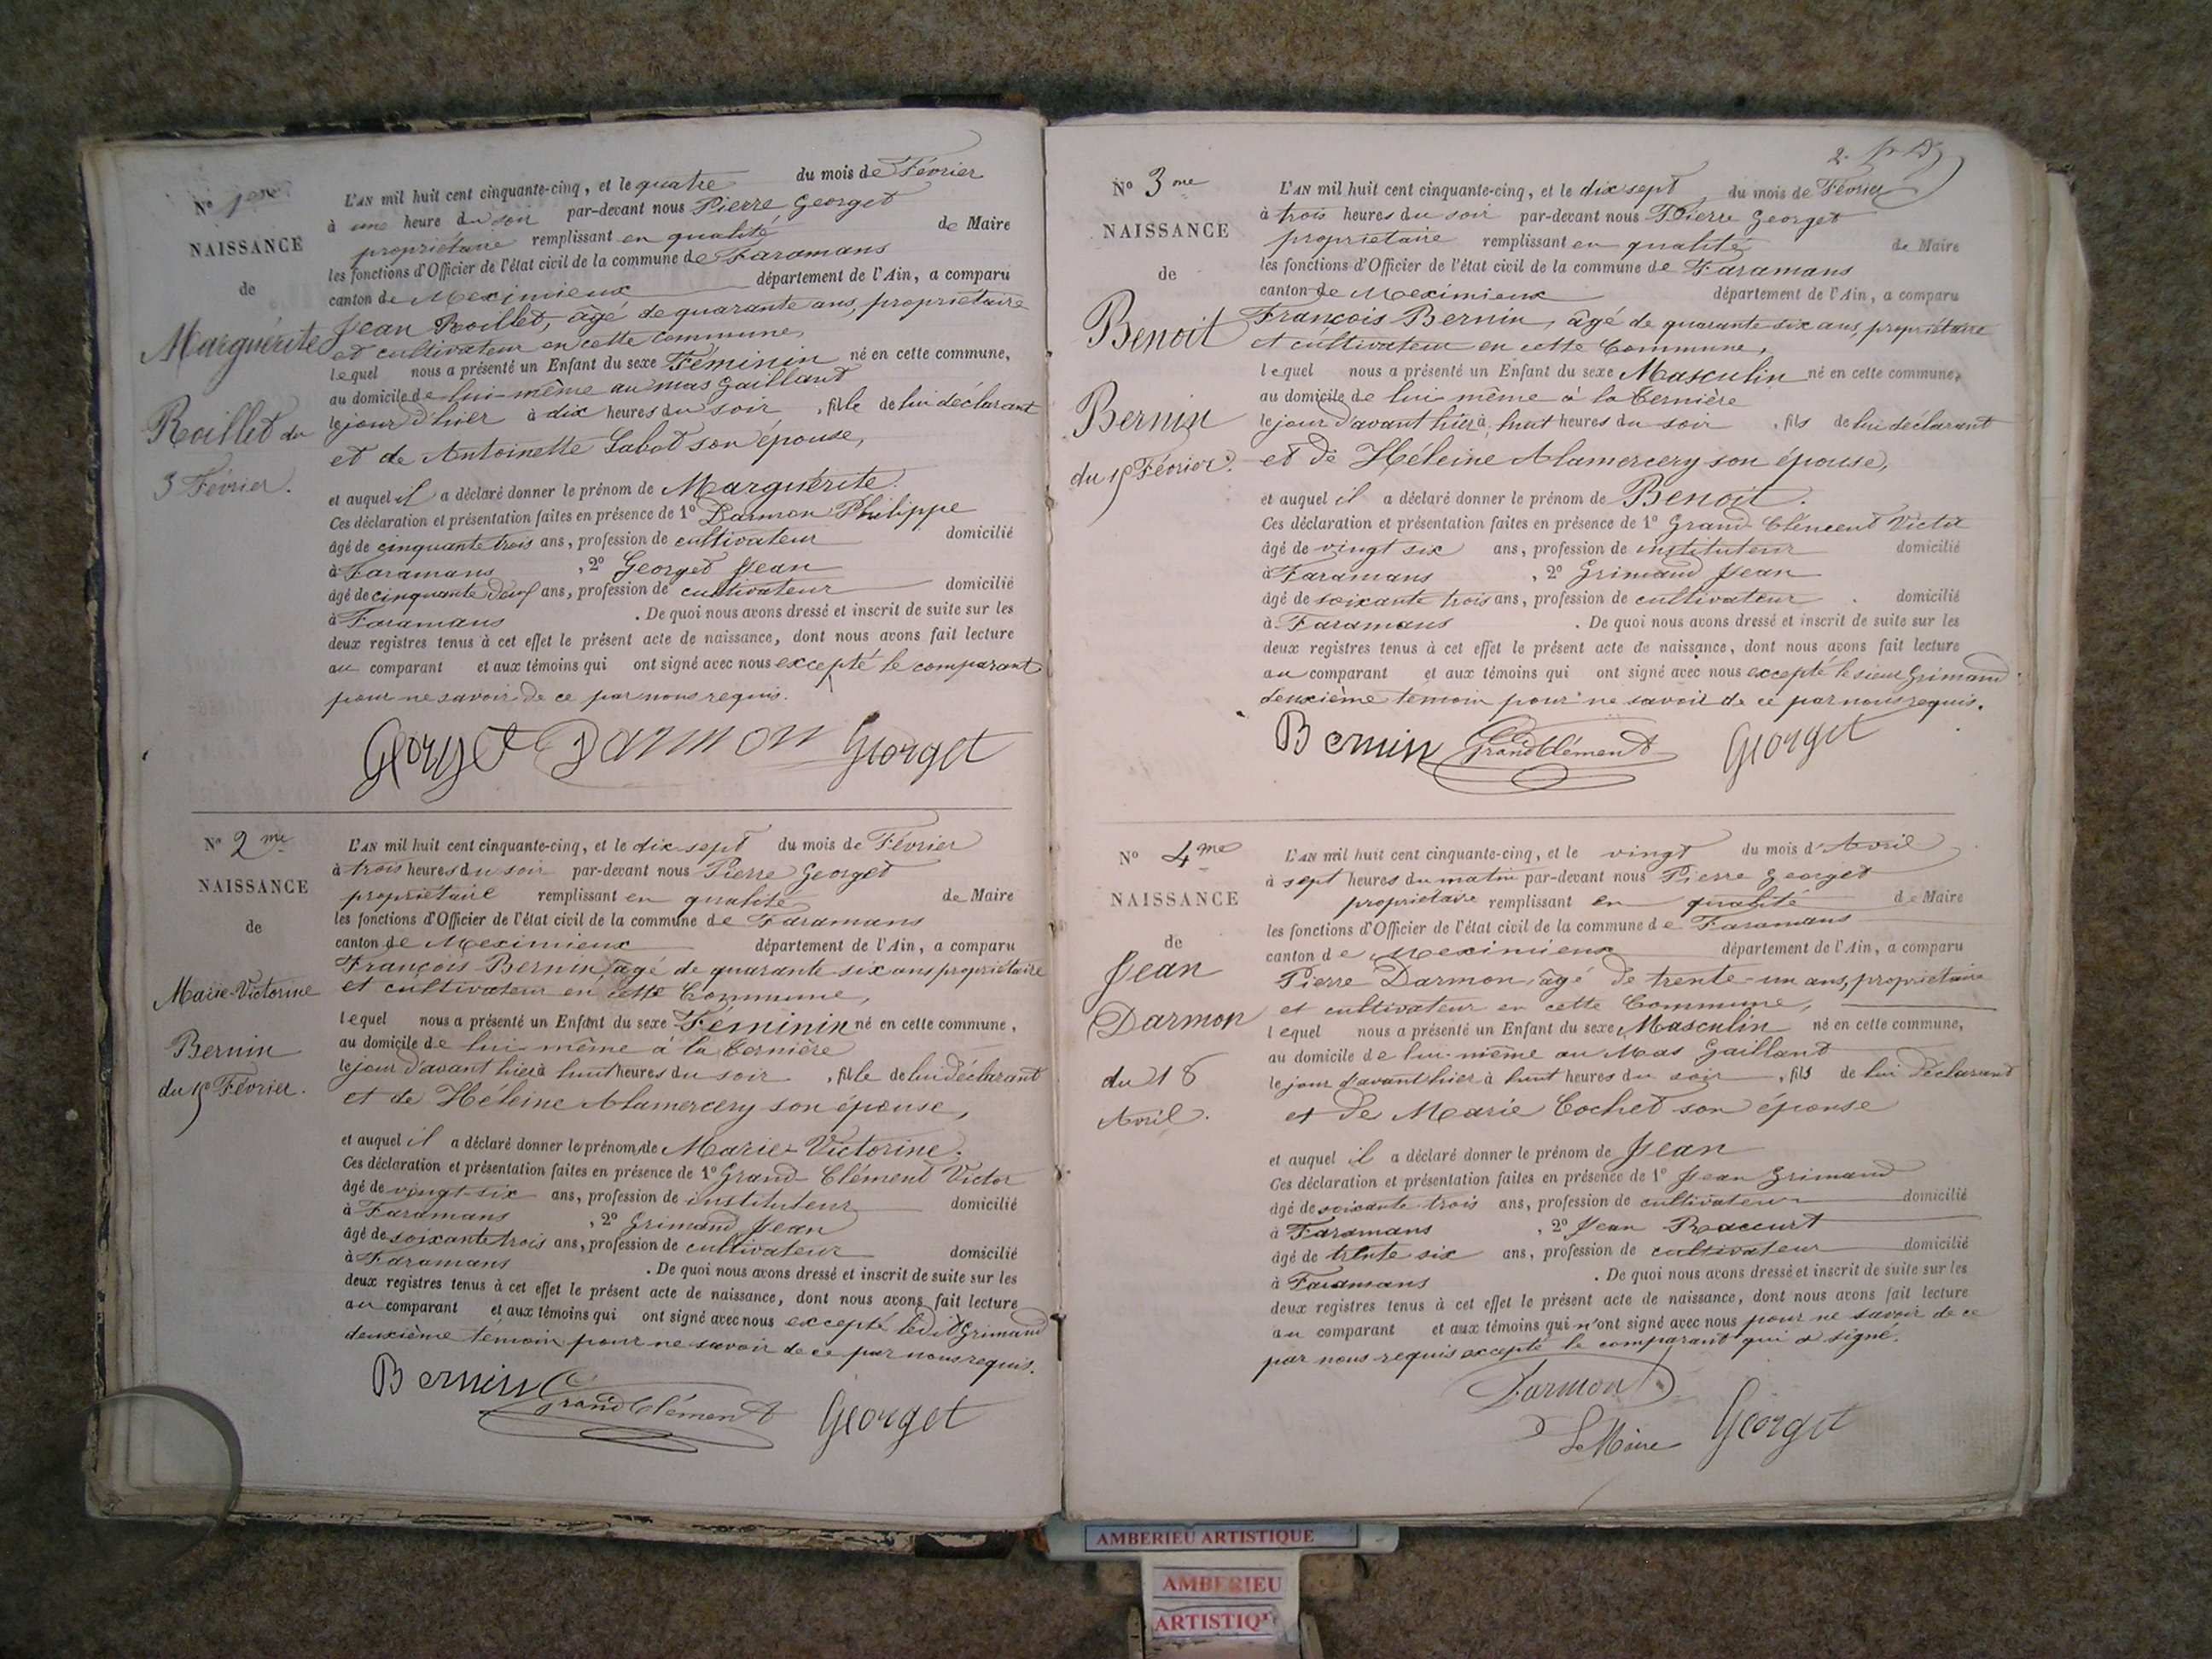 N° 1ere
NAISSANCE
de
Marguérite
Roillet du
3 Février.
L'AN mil huit cent cinquante-cinq, et le quatre du mois de Février
à une heure du soir par-devant nous Pierre Georget
propriétaire remplissant en qualité de Maire
les fonctions d'Officier de l'état civil de la commune de Faramans
canton de Meximieux département de l'Ain, a comparu
Jean Roillet, âgé de quarante ans, propriétaire
et cultivateur en cette commune,
lequel nous a présenté un Enfant du sexe Féminin né en cette commune,
au domicile de lui-même au mas Gaillard
le jour d'hier à dix heures du soir, fille de lui déclarant
et de Antoinette Sabot son épouse,
et auquel il a déclaré donner le prénom de Marguérite.
Ces déclaration et présentation faites en présence de 1° Darmon Philippe
âgé de cinquante trois ans, profession de cultivateur domicilié
à Faramans, 2° Georget Jean
âgé de cinquante deux ans, profession de cultivateur domicilié
à Faramans. De quoi nous avons dressé et inscrit de suite sur les
deux registres tenus à cet effet le présent acte de naissance, dont nous avons fait lecture
au comparant et aux témoins qui ont signé avec nous excepté le comparant
pour ne savoir de ce par nous requis.
Georget Darmon Georget
N° 2me
NAISSANCE
de
Marie-Victorine
Bernin
du 15 Février.
L'AN mil huit cent cinquante-cinq, et le dix-sept du mois de Février
à trois heures du soir par-devant nous Pierre Georget
propriétaire remplissant en qualité de Maire
les fonctions d'Officier de l'état civil de la commune de Faramans
canton de Meximieux département de l'Ain, a comparu
François Bernin, âgé de quarante-six ans propriétaire
et cultivateur en cette Commune,
lequel nous a présenté un Enfant du sexe Féminin né en cette commune,
au domicile de lui-même à la Bernière
le jour d'avant hier à huit heures du soir, fille de lui déclarant
et de Héleine Alamercery son épouse,
et auquel il a déclaré donner le prénom de Marie-Victorine.
Ces déclaration et présentation faites en présence de 1° Grand-Clément Victor
âgé de vingt-six ans, profession de instituteur domicilié
à Faramans, 2° Grimand Jean
âgé de soixante trois ans, profession de cultivateur domicilié
à Faramans. De quoi nous avons dressé et inscrit de suite sur les
deux registres tenus à cet effet le présent acte de naissance, dont nous avons fait lecture
au comparant et aux témoins qui ont signé avec nous excepté ledit Grimand
deuxième témoin pour ne savoir de ce par nous requis.
Bernin Grand Clément Georget
N° 3me
NAISSANCE
de
Benoit
Bernin
du 15 Février.
L'AN mil huit cent cinquante-cinq, et le dix sept du mois de Février
à trois heures du soir par-devant nous Pierre Georget
propriétaire remplissant en qualité de Maire
les fonctions d'Officier de l'état civil de la commune de Faramans
canton de Meximieux département de l'Ain, a comparu
François Bernin, âgé de quarante-six ans, propriétaire
et cultivateur en cette Commune,
lequel nous a présenté un Enfant du sexe Masculin né en cette commune,
au domicile de lui-même à la Bernière
le jour d'avant hier à huit heures du soir, fils de lui déclarant
et de Héleine Alamercery son épouse,
et auquel il a déclaré donner le prénom de Benoit.
Ces déclaration et présentation faites en présence de 1° Grand Clément Victor
âgé de vingt six ans, profession de instituteur domicilié
à Faramans, 2° Grimand Jean
âgé de soixante trois ans, profession de cultivateur domicilié
à Faramans. De quoi nous avons dressé et inscrit de suite sur les
deux registres tenus à cet effet le présent acte de naissance, dont nous avons fait lecture
au comparant et aux témoins qui ont signé avec nous excepté le sieur Grimand
deuxième temoin pour ne savoir de ce par nous requis.
Bernin Grand Clément Georget
N° 4me
NAISSANCE
de
Jean
Darmon
du 18
Avril.
L'AN mil huit cent cinquante-cinq, et le vingt du mois d'Avril
à sept heures du matin par-devant nous Pierre Georget
propriétaire remplissant en qualité de Maire
les fonctions d'Officier de l'état civil de la commune de Faramans
canton de Meximieux département de l'Ain, a comparu
Pierre Darmon, âgé de trente-un ans, propriétaire
et cultivateur en cette Commune,
lequel nous a présenté un Enfant du sexe Masculin né en cette commune,
au domicile de lui-même au Mas Gaillard
le jour d'avant hier à huit heures du soir, fils de lui déclarant
et de Marie Cochet son épouse
et auquel il a déclaré donner le prénom de Jean
Ces déclaration et présentation faites en présence de 1° Jean Grimand
âgé de soixante trois ans, profession de cultivateur domicilié
à Faramans, 2° Jean Raccurt
âgé de trente six ans, profession de cultivateur domicilié
à Faramans. De quoi nous avons dressé et inscrit de suite sur les
deux registres tenus à cet effet le présent acte de naissance, dont nous avons fait lecture
au comparant et aux témoins qui n'ont signé avec nous pour ne savoir de ce
par nous requis excepté le comparant qui a signé.
Darmon
Le Maire Georget
AMBERIEU ARTISTIQUE
AMBERIEU
ARTISTIQ